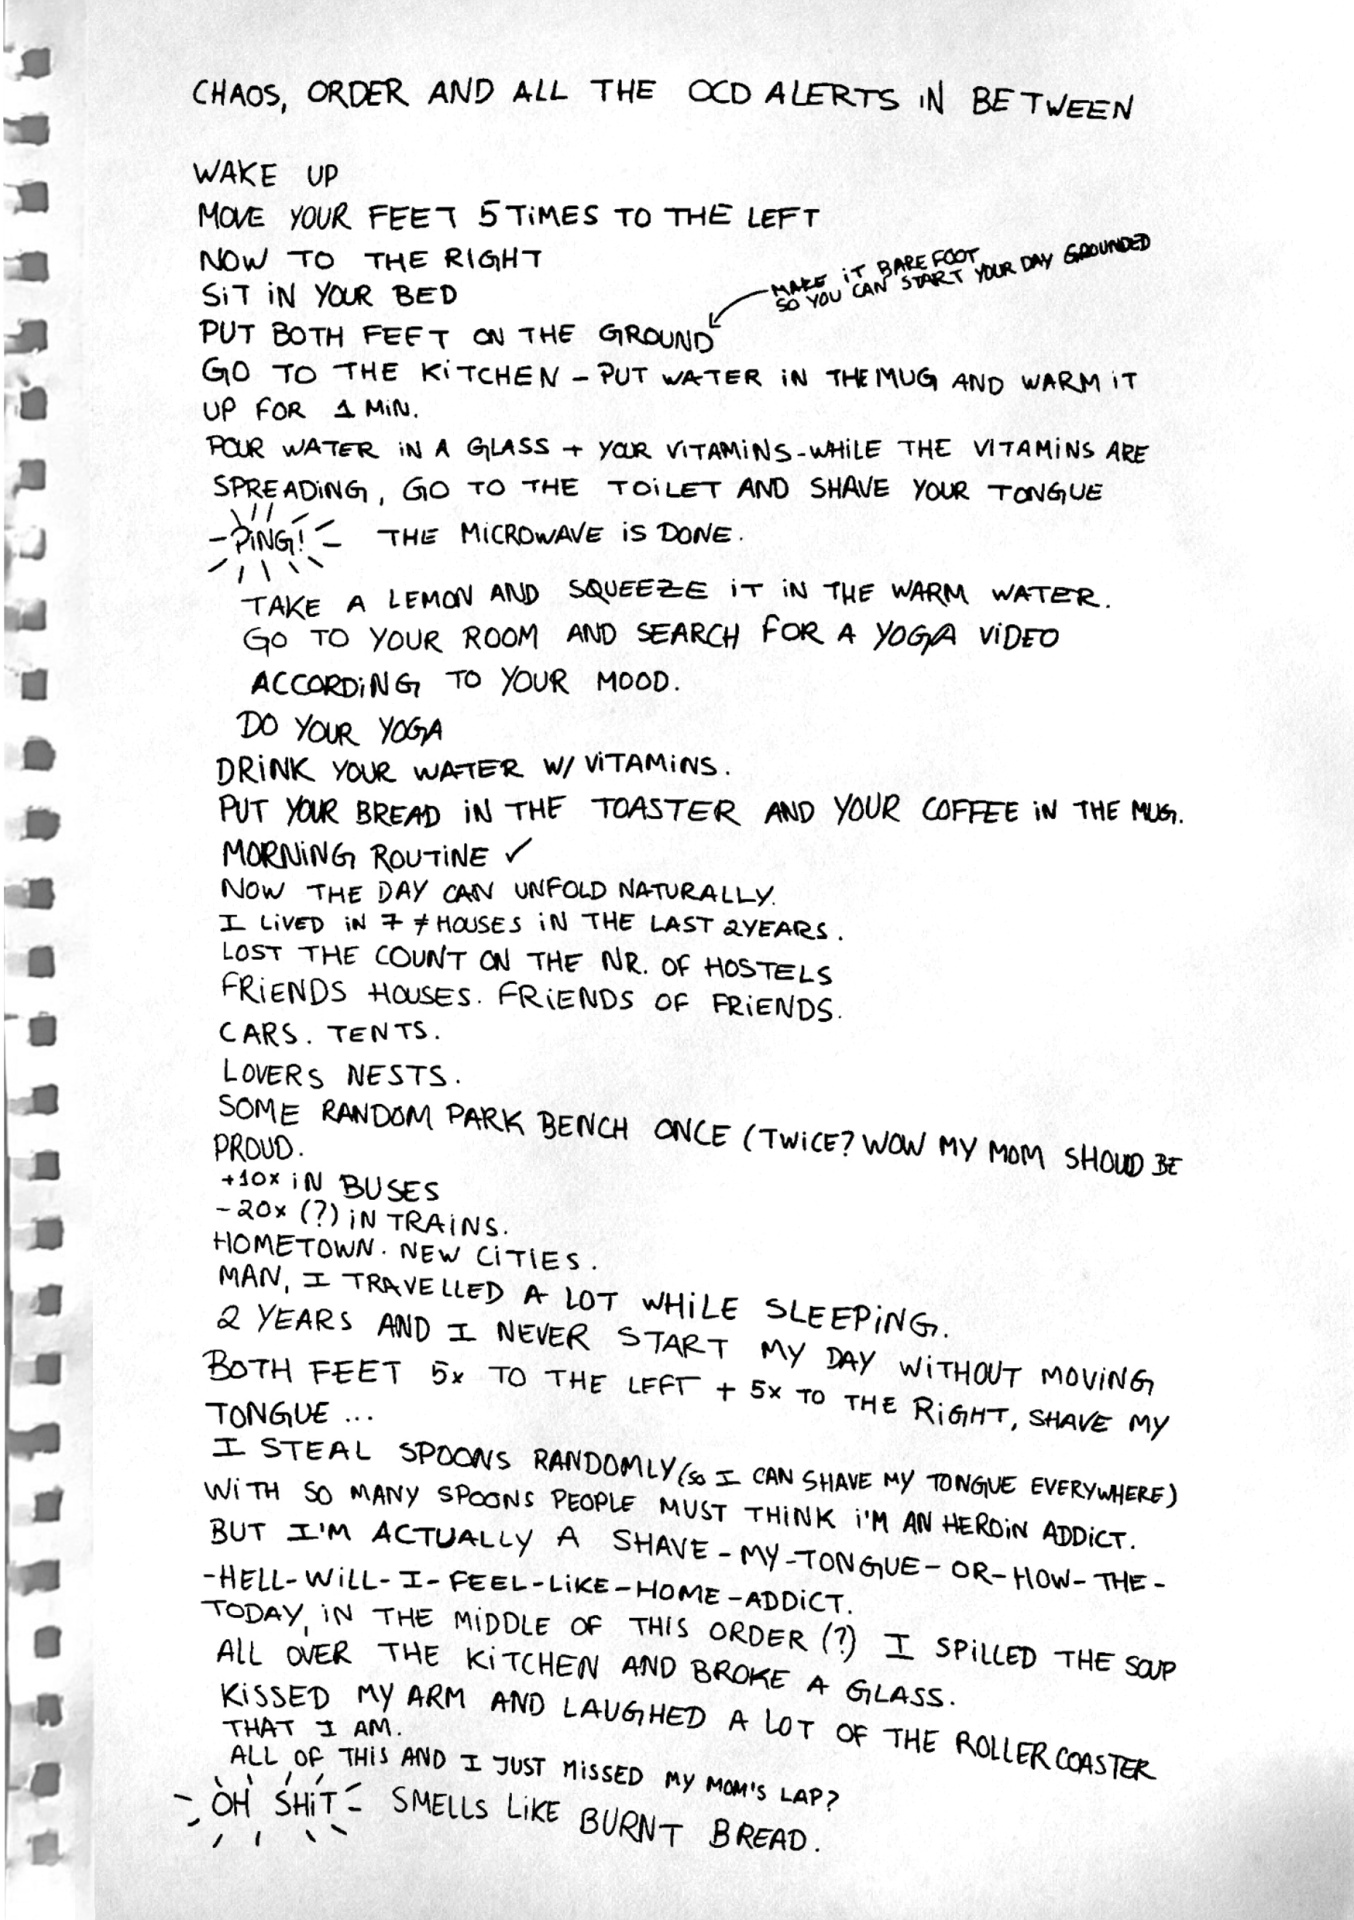 CHAOS, ORDER AND ALL THE OCD ALERTS IN BETWEEN
WAKE UP
MOVE YOUR FEET 5 TIMES TO THE LEFT
NOW TO THE RIGHT
SIT IN YOUR BED
MAKE IT BAREFOOT
SO YOU CAN START YOUR DAY GROUNDED
PUT BOTH FEET ON THE GROUND
GO TO THE KITCHEN - PUT WATER IN THE MUG AND WARM IT
UP FOR 1 MIN.
POUR WATER IN A GLASS + YOUR VITAMINS - WHILE THE VITAMINS ARE
SPREADING, GO TO THE TOILET AND SHAVE YOUR TONGUE
- PING! - THE MICROWAVE IS DONE.
TAKE A LEMON AND SQUEEZE IT IN THE WARM WATER.
GO TO YOUR ROOM AND SEARCH FOR A YOGA VIDEO
ACCORDING TO YOUR MOOD.
DO YOUR YOGA
DRINK YOUR WATER W/ VITAMINS.
PUT YOUR BREAD IN THE TOASTER AND YOUR COFFEE IN THE MUG.
MORNING ROUTINE ✓
NOW THE DAY CAN UNFOLD NATURALLY.
I LIVED IN 7 ≠ HOUSES IN THE LAST 2 YEARS.
LOST THE COUNT ON THE NR. OF HOSTELS
FRIENDS HOUSES. FRIENDS OF FRIENDS.
CARS. TENTS.
LOVERS NESTS.
SOME RANDOM PARK BENCH ONCE (TWICE? WOW MY MOM SHOUD BE
PROUD.
+10x IN BUSES
-20x (?) IN TRAINS.
HOMETOWN. NEW CITIES.
MAN, I TRAVELLED A LOT WHILE SLEEPING.
2 YEARS AND I NEVER START MY DAY WITHOUT MOVING
BOTH FEET 5x TO THE LEFT + 5x TO THE RIGHT, SHAVE MY
TONGUE ...
I STEAL SPOONS RANDOMLY (SO I CAN SHAVE MY TONGUE EVERYWHERE)
WITH SO MANY SPOONS PEOPLE MUST THINK I'M AN HEROIN ADDICT.
BUT I'M ACTUALLY A SHAVE-MY-TONGUE-OR-HOW-THE-
-HELL-WILL-I-FEEL-LIKE-HOME-ADDICT.
TODAY, IN THE MIDDLE OF THIS ORDER (?) I SPILLED THE SOUP
ALL OVER THE KITCHEN AND BROKE A GLASS.
KISSED MY ARM AND LAUGHED A LOT OF THE ROLLERCOASTER
THAT I AM.
ALL OF THIS AND I JUST MISSED MY MOM'S LAP?
- OH SHIT - SMELLS LIKE BURNT BREAD.